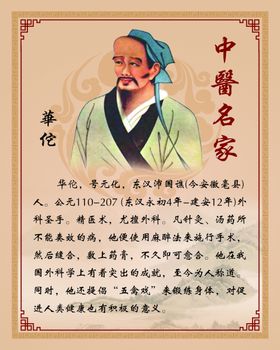 中醫名家
華佗
华佗，号元化，东汉沛国谯(今安徽亳县)
人。公元110-207 (东汉永初4年-建安12年)外
科圣手。精医术，尤擅外科。凡针灸、汤药所
不能奏效的病，他便使用麻醉法来施行手术，
然后缝合，敷上药膏，不久即可愈合。他在我
国外科学上有着突出的成就，至今为人称道。
同时，他还提倡“五禽戏”来锻练身体，对促
进人类健康也有积极的意义。